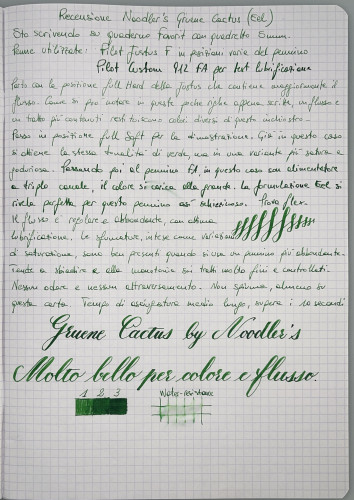 Recensione Noodler's Gruene Cactus (Eel)
Sto scrivendo su quaderno Favorit con quadretto 5mm.
Penne utilizzate: Pilot Justus F in posizioni varie del pennino
Pilot Custom 912 FA per test lubrificazione
Parto con la posizione full Hard della Justus che contiene maggiormente il
flusso. Come si può notare in queste poche righe appena scritte, in flusso e
in tratto più contenuti restituiscono colori diversi di questo inchiostro.
Passo in posizione full Soft per la dimostrazione. Già in questo caso
si ottiene la stessa tonalità di verde, ma in una variante più satura e
godurioso. Passando poi al pennino FA, in questo caso con alimentatore
a triplo canale, il colore si carica alla grande. La formulazione Eel si
rivela perfetta per questo pennino così schizzinoso. Prova flex.
Il flusso è regolare e abbondante, con ottima
lubrificazione. Le sfumature, intese come variazioni
di saturazione, sono ben presenti quando si usa un pennino più abbondante.
Tende a sbiadire e alla monotonia sui tratti molto fini e controllati.
Nessun odore e nessun attraversamento. Non spiuma, almeno su
questa carta. Tempo di asciugatura medio lungo, supera i 20 secondi
Gruene Cactus by Noodler's
Molto bello per colore e flusso.
1 2 3 Water-resistance